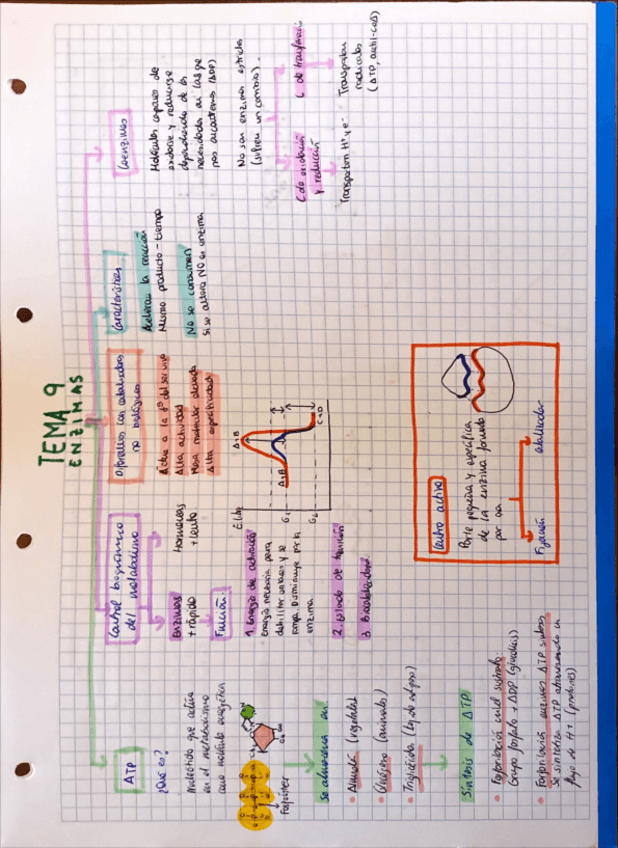 TEMA 9
ENZIMAS
ATP
¿Qué es?
Nucleótido que actúa
en el metabolismo
como molécula energética
Fosfóster
Se almacena en:
• Almidón (vegetal)
• Glucógeno (animales)
• Triglicérido (tej. adiposo)
Síntesis de ATP
• Fosforilación nivel sustrato:
Grupo fosfato + ADP (glucólisis)
• Fosforilación enzimas ATP sintasas
Se sintetiza ATP
flujo de H+ (protones)
Control bioquímico
del metabolismo
Enzimas
+ rápido
Hormonas
+ lento
Función:
1. Energía de activación
energía necesaria para
debilitar enlaces y se
rompa. Disminuye por la
enzima
2. Estado de transición
3.
A+B
A+B
C+D
Diferencias con catalizadores
no biológicos
Actúa a la Tª del ser vivo
Alta actividad
Masa molecular elevada
Alta especificidad
Características
Aceleran la reacción
Mismo producto - tiempo
No se consumen
Si se altera NO es enzima
Coenzimas
Moléculas capaces de
oxidarse y reducirse
dependiendo de la
No son enzimas estrictas
(sufren un cambio).
C de oxidación
y reducción
Transportan H+ y e-
C. de transferencia
Transportan
radicales
(ATP, acetil-CoA)
Centro activo
Parte pequeña y específica
de la enzima formada
por aa
Fijación
Catalizador